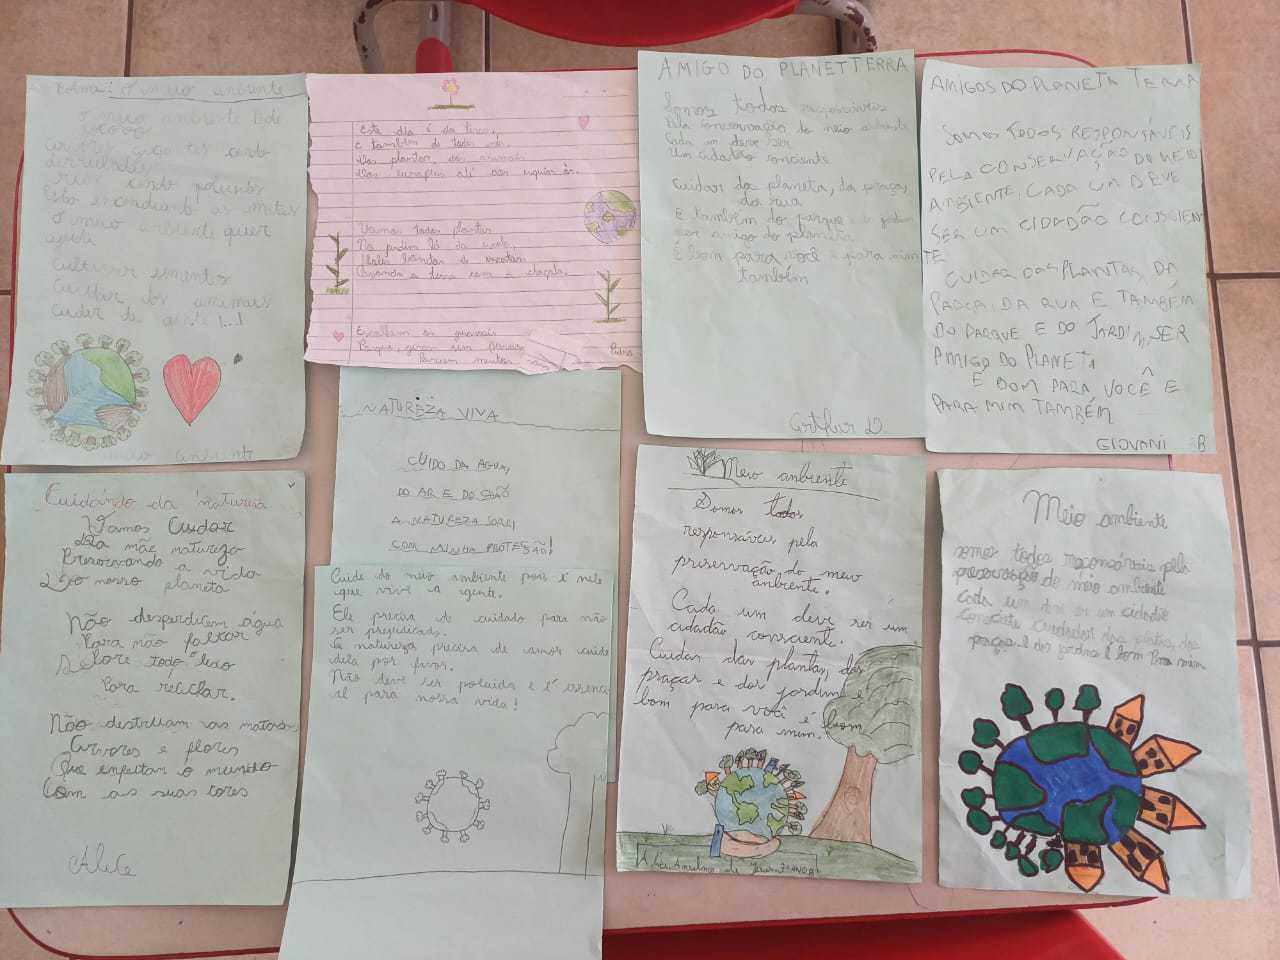 o meio ambiente
o meio ambiente pede
socorro
rios estão poluentos
Estão encendiando as matas
O meio ambiente quer
ajuda
Cultivar sementes
Cuidar dos animais
cuidar da gente!...
meio ambiente
Este dia é da terra,
e também de todos nós.
Das plantas, dos animais
Vamos todos plantar
No jardim lá da escola,
Ajuando a terra com a chegada.
Escutam os
Pedro
AMIGO DO PLANETTERRA
Somos todos responsáveis
Pela conservação do meio ambiente
Cada um deve ser
Um cidadão consciente
cuidar da planeta, da praça,
da rua
E também do parque e do jardim
ser amigo do planeta
É bom para você e para mim
também
Arthur D.
AMIGOS DO PLANETA TERRA
SOMOS TODOS RESPONSÁVEIS
PELA CONSERVAÇÃO DO MEIO
AMBIENTE, CADA UM DEVE
SER UM CIDADÃO CONSCIEN
TE
CUIDAR DAS PLANTAS, DA
PRAÇA, DA RUA E TAMBÉM
DO PARQUE E DO JARDIM, SER
AMIGO DO PLANETA
E BOM PARA VOCÊ E
PARA MIM TAMBÉM
GIOVANI B
Cuidando da natureza
Vamos Cuidar
Da mãe natureza
Preservando a vida
Do nosso planeta
Não desperdicem água
Para não faltar
Separe todo lixo
Para réciclar.
Não destruam as matas
Arvores e flores
Que enfeitam o mundo
Com as suas cores
Alice
NATUREZA VIVA
CUIDO DA AGUA,
DO AR E DO SOLO
A NATUREZA SORRI
COM MINHA PROTESSÃO!
Cuide do meio ambiente pois é nele
que vive a gente.
Ele precisa de cuidado para não
ser prejudicado.
A natureza precisa de amor cuide
dela por favor.
Não deve ser poluida e é essenci
al para nossa vida!
Meio ambiente
Somos todos
responsáveis pela
preservação do meio
ambiente.
Cada um deve ser um
cidadão consciente.
Cuidar das plantas, das
praças e dos jardins é
bom para você é bom
para mim.
Meio ambiente
somos todos responsáveis pela
preservação do meio ambiente
cada um deve ser um cidadão
consciente cuidar das plantas, das
praças e dos jardins é bom para mim